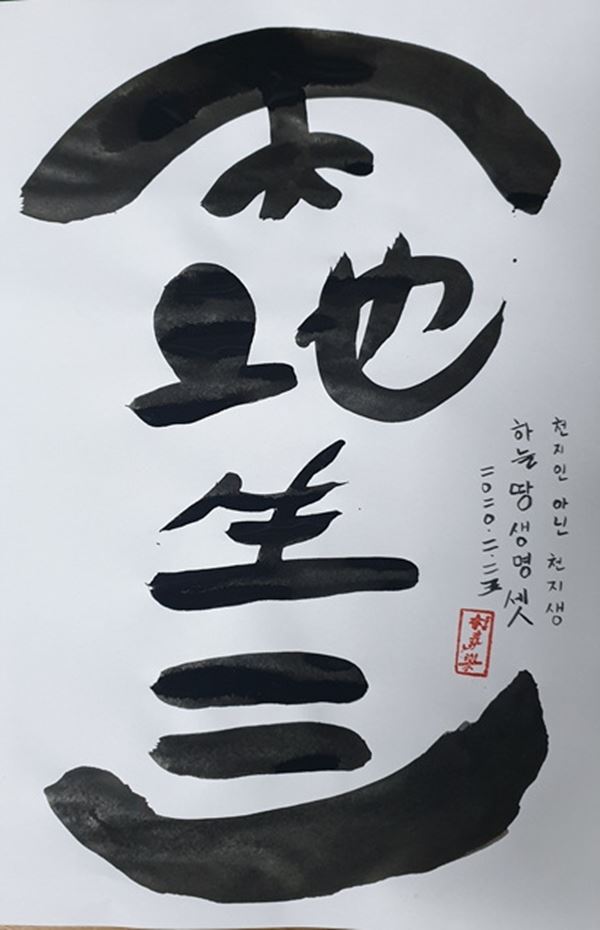 天地生三
천지인 아닌 천지생
하늘 땅 생명 셋
二〇二〇.二.二五